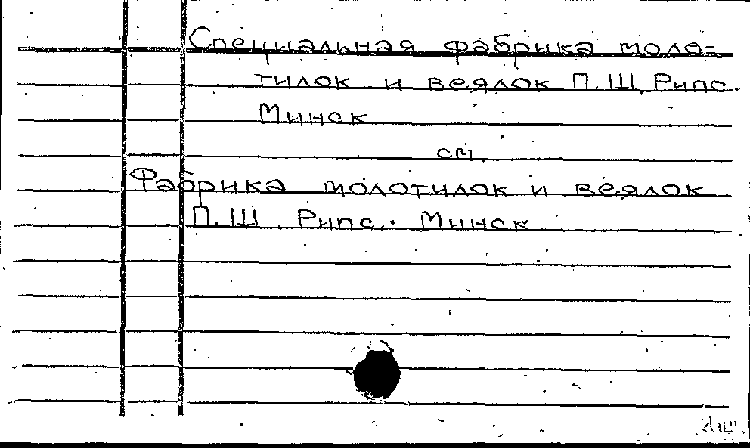 Специальная фабрика моло=
тилок и веялок П.Ш. Рипс.
Минск
см.
Фабрика молотилок и веялок
П.Ш. Рипс. Минск